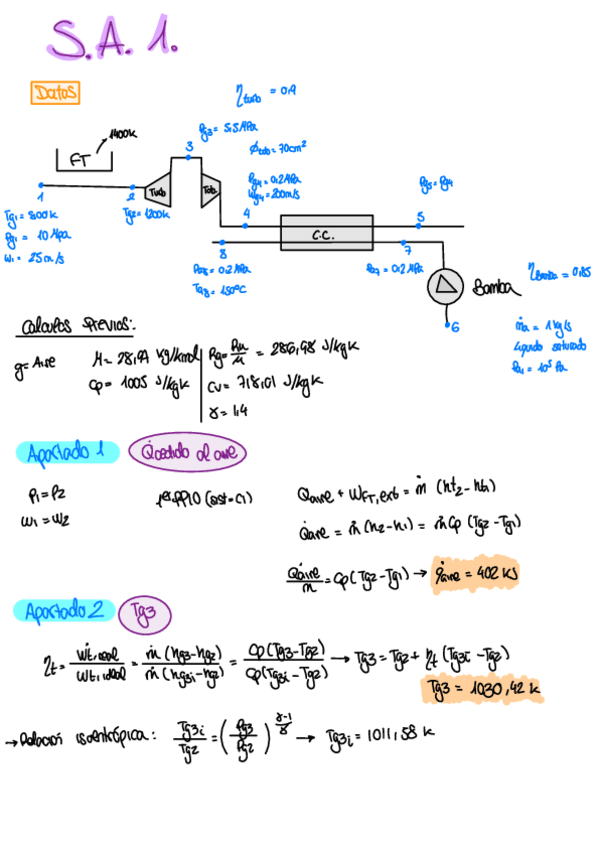 S.A. 1.
Datos
ηturb = 0.9
1400K
FT
3
Pg3 = 5.5MPa
ϕtob = 70cm²
1
2
Turb
Tob
Pg4 = 0.2MPa
Wg4 = 200m/s
Pg5 = Pg4
Tg1 = 800K
Pg1 = 10 MPa
W1 = 25m/s
Tg2 = 1200K
4
C.C.
5
8
7
Pa8 = 0.2MPa
Ta8 = 150ºC
Pa7 = 0.2 MPa
ηBomba = 0,85
Bomba
6
ṁa = 1 kg/s
líquido saturado
Pa1 = 10⁵ Pa
Calculos previos:
g = Aire
M = 28,97 kg/kmol
Rg = Ru/M = 286,98 J/kgK
Cp = 1005 J/kgK
Cv = 718,01 J/kgK
γ = 1,4
Apartado 1
Q̇cedido al aire
P1 = P2
W1 = W2
1er PPIO (est-ci)
Q̇aire + ẆFT,ext = ṁ (ht2 - ht1)
Q̇aire = ṁ (h2-h1) = ṁ Cp (Tg2 - Tg1)
Q̇aire/ṁ = Cp (Tg2-Tg1) → q̇aire = 402 KJ
Apartado 2
Tg3
ηt = Ẇt,real/Ẇt,ideal = ṁ (hg3-hg2)/ṁ (hg3i-hg2) = Cp (Tg3-Tg2)/Cp (Tg3i-Tg2) → Tg3 = Tg2 + ηt (Tg3i - Tg2)
Tg3 = 1030,42 K
→ Relación isoentrópica: Tg3i/Tg2 = (Pg3/Pg2)^(γ-1/γ) → Tg3i = 1011,58 K